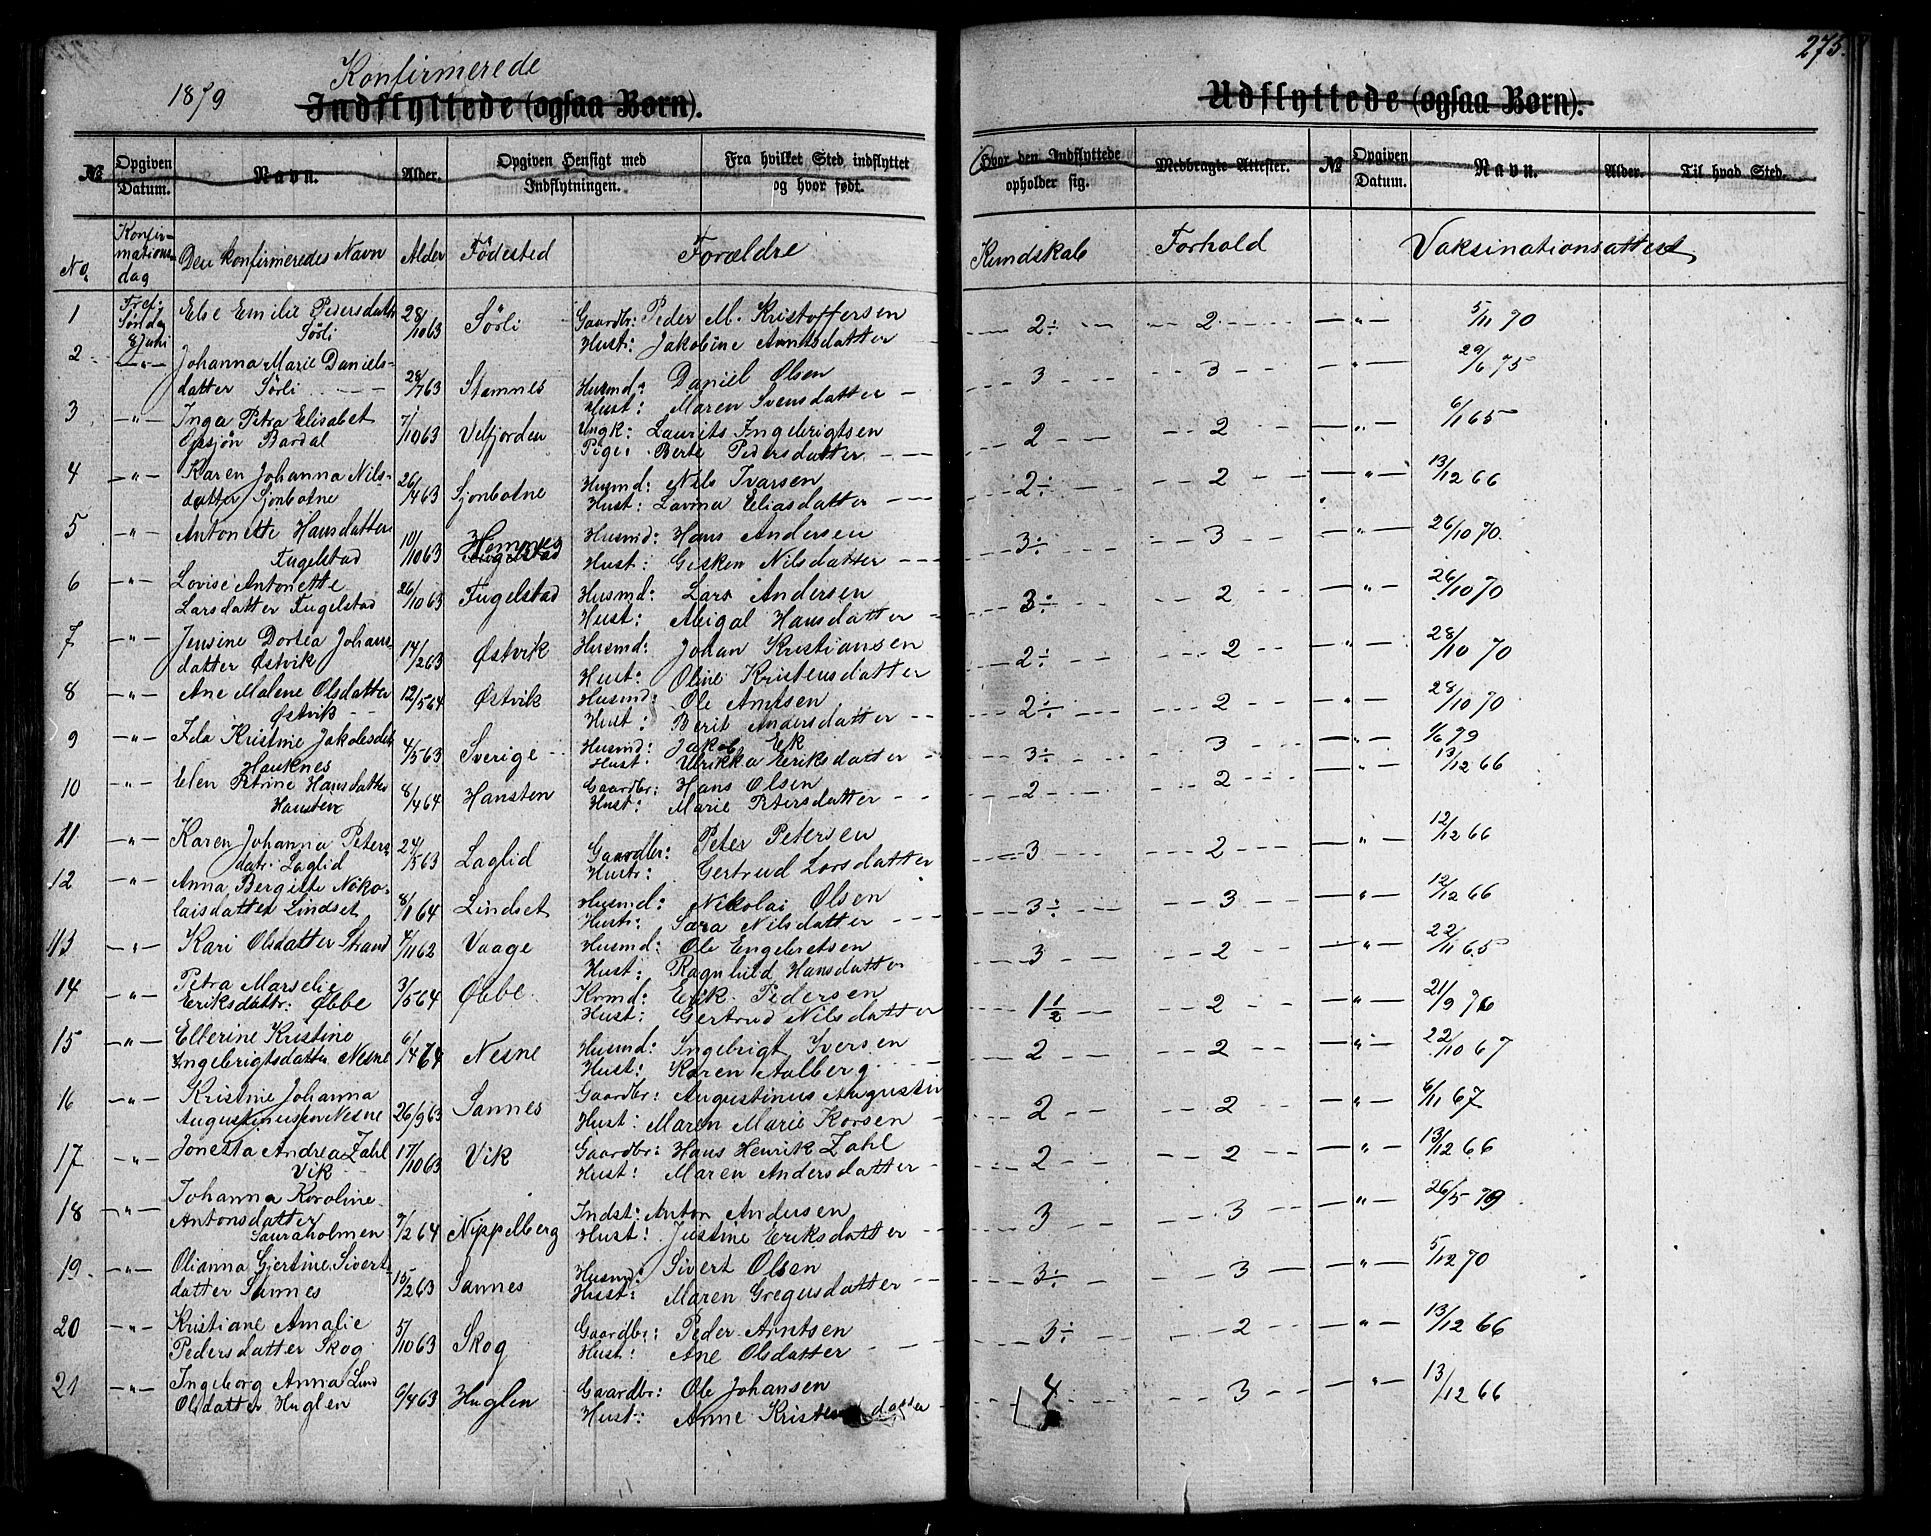 1879
Konfirmerede
Indflyttede (ogsaa Børn).
Udflyttede (ogsaa Børn).
275.
№ Opgiven Datum. Navn. Alder. Opgiven Hensigt med Indflytningen. Fra hvilket Sted indflyttet og hvor født. Hvor den Indflyttede opholder sig. Medbragte Attester. № Opgiven Datum. Navn. Alder. Til hvad Sted.
No. Konfirmationsdag Den konfirmeredes Navn Alder Födested Forældre Kundskab Forhold Vaksinationsattest
1 Tref: Else Emilie Pedersdatr 28/10 63 Sörli Gaardbr: Peder M. Kristoffersen 2÷ 2 — " — 5/11 70
Søndag 8 Juni Sörli Hust: Jakobine Arntsdatter
2 — " — Johanna Marie Daniels- 28/7 63 Stamnes Husmd: Daniel Olsen 3 3 — " — 29/6 75
datter Sörli Hust: Maren Svensdatter
3 — " — Inga Petra Elisabet 7/10 63 Velfjorden Ungk: Laurits Ingebrigtsen 2 2 — " — 6/1 65
Bardal Pige: Berte Pedersdatter
4 — " — Karen Johanna Nils- 26/4 63 Sjonbotne Husmd: Nils Ivarsen 2÷ 2 — " — 13/12 66
datter Sjonbotne Hust: Lavina Eliasdatter
5 " Antonette Hansdatter 10/10 63 Hemnes Husmd: Hans Andersen 3÷ 3 — " — 26/10 70
Fugelstad Hust: Gisken Nilsdatter
6 — " — Lovise Antonette 26/10 63 Fugelstad Husmd: Lars Andersen 3÷ 2 — " — 26/10 70
Larsdatter Fugelstad Hust: Abigal Hansdatter
7 — " — Jensine Dortea Johans- 14/2 63 Østvik Husmd: Johan Kristiansen 2÷ 2 — " — 28/10 70
datter Østvik Hust: Oline Kristensdatter
8 — " — Ane Malene Olsdatter 12/5 64 Østvik Husmd: Ole Arntsen 2÷ 2 — " — 28/10 70
Østvik Hust: Berit Andersdatter
9 — " — Ida Kristine Jakobsdat 4/5 63 Sverige Husmd: Jakob Ek 3÷ 3 — " — 1/6 79
Hauknes Hust: Ulrikka Eriksdatter
10 — " — Elen Petrine Hansdatter 8/4 64 Hansten Gaardbr: Hans Olsen 2 2 — " — 13/12 66
Hansten Hust: Marie Petersdatter
11 — " — Karen Johanna Peters- 24/5 63 Laglid Gaardbr: Peter Petersen 3 2 — " — 12/12 66
datr. Laglid Hustr: Gertrud Larsdatter
12 — " — Anna Bergitte Niko- 8/1 64 Lindset Husmd: Nikolai Olsen 3÷ 3 — " — 12/12 66
laisdatter Lindset Hustr: Sara Nilsdatter
13 " Kari Olsdatter Strand 4/11 62 Vaage Husmd: Ole Engebretsen 3 2 — " — 22/11 65
Hust: Ragnhild Hansdatter
14 " Petra Marselie 3/5 64 Øbbe Kvmd: Erik Pedersen 1 1/2 2 — " — 21/9 76
Eriksdattr: Øbbe Hust: Gertrud Nilsdatter
15 — " — Elterine Kristine 6/1 64 Nesne Husmd: Ingebrigt Iversen 2 2 — " — 22/10 67
Ingebrigtsdatter Nesne Hust: Karen Aalberg
16 — " — Kristine Johanna 26/9 63 Sannes Gaardbr: Augustinus Augustin 2 2 — " — 6/11 67
Augustinusen Nesne Hust: Maren Marie Korsen
17 — " — Jonetta Andrea Zahl 17/10 63 Vik Gaardbr: Hans Henrik Zahl 2 2 — " — 13/12 66
Vik Hust: Maren Andersdatter
18 — " — Johanna Karoline 7/2 64 Nippelberg Indst: Anton Andersen 3 3 — " — 26/5 79
Antonsdatter Hust: Justine Eriksdatter
Sauraholmen
19 — " — Olianna Gjertine Sivert 15/2 63 Sannes Husmd: Sivert Olsen 3÷ 3 — " — 5/12 70
datter Sannes Hust: Maren Gregusdatter
20 — " — Kristiane Amalie 5/10 63 Skog Gaardbr: Peder Arntsen 3÷ 2 — " — 13/12 66
Pedersdatter Skog Hust: Ane Olsdatter
21 — " — Ingeborg Anna Lind 9/4 63 Huglen Gaardbr: Ole Johansen 4 3 — " — 13/12 66
Olsdatter Huglen Hust: Anne Kristensdatter